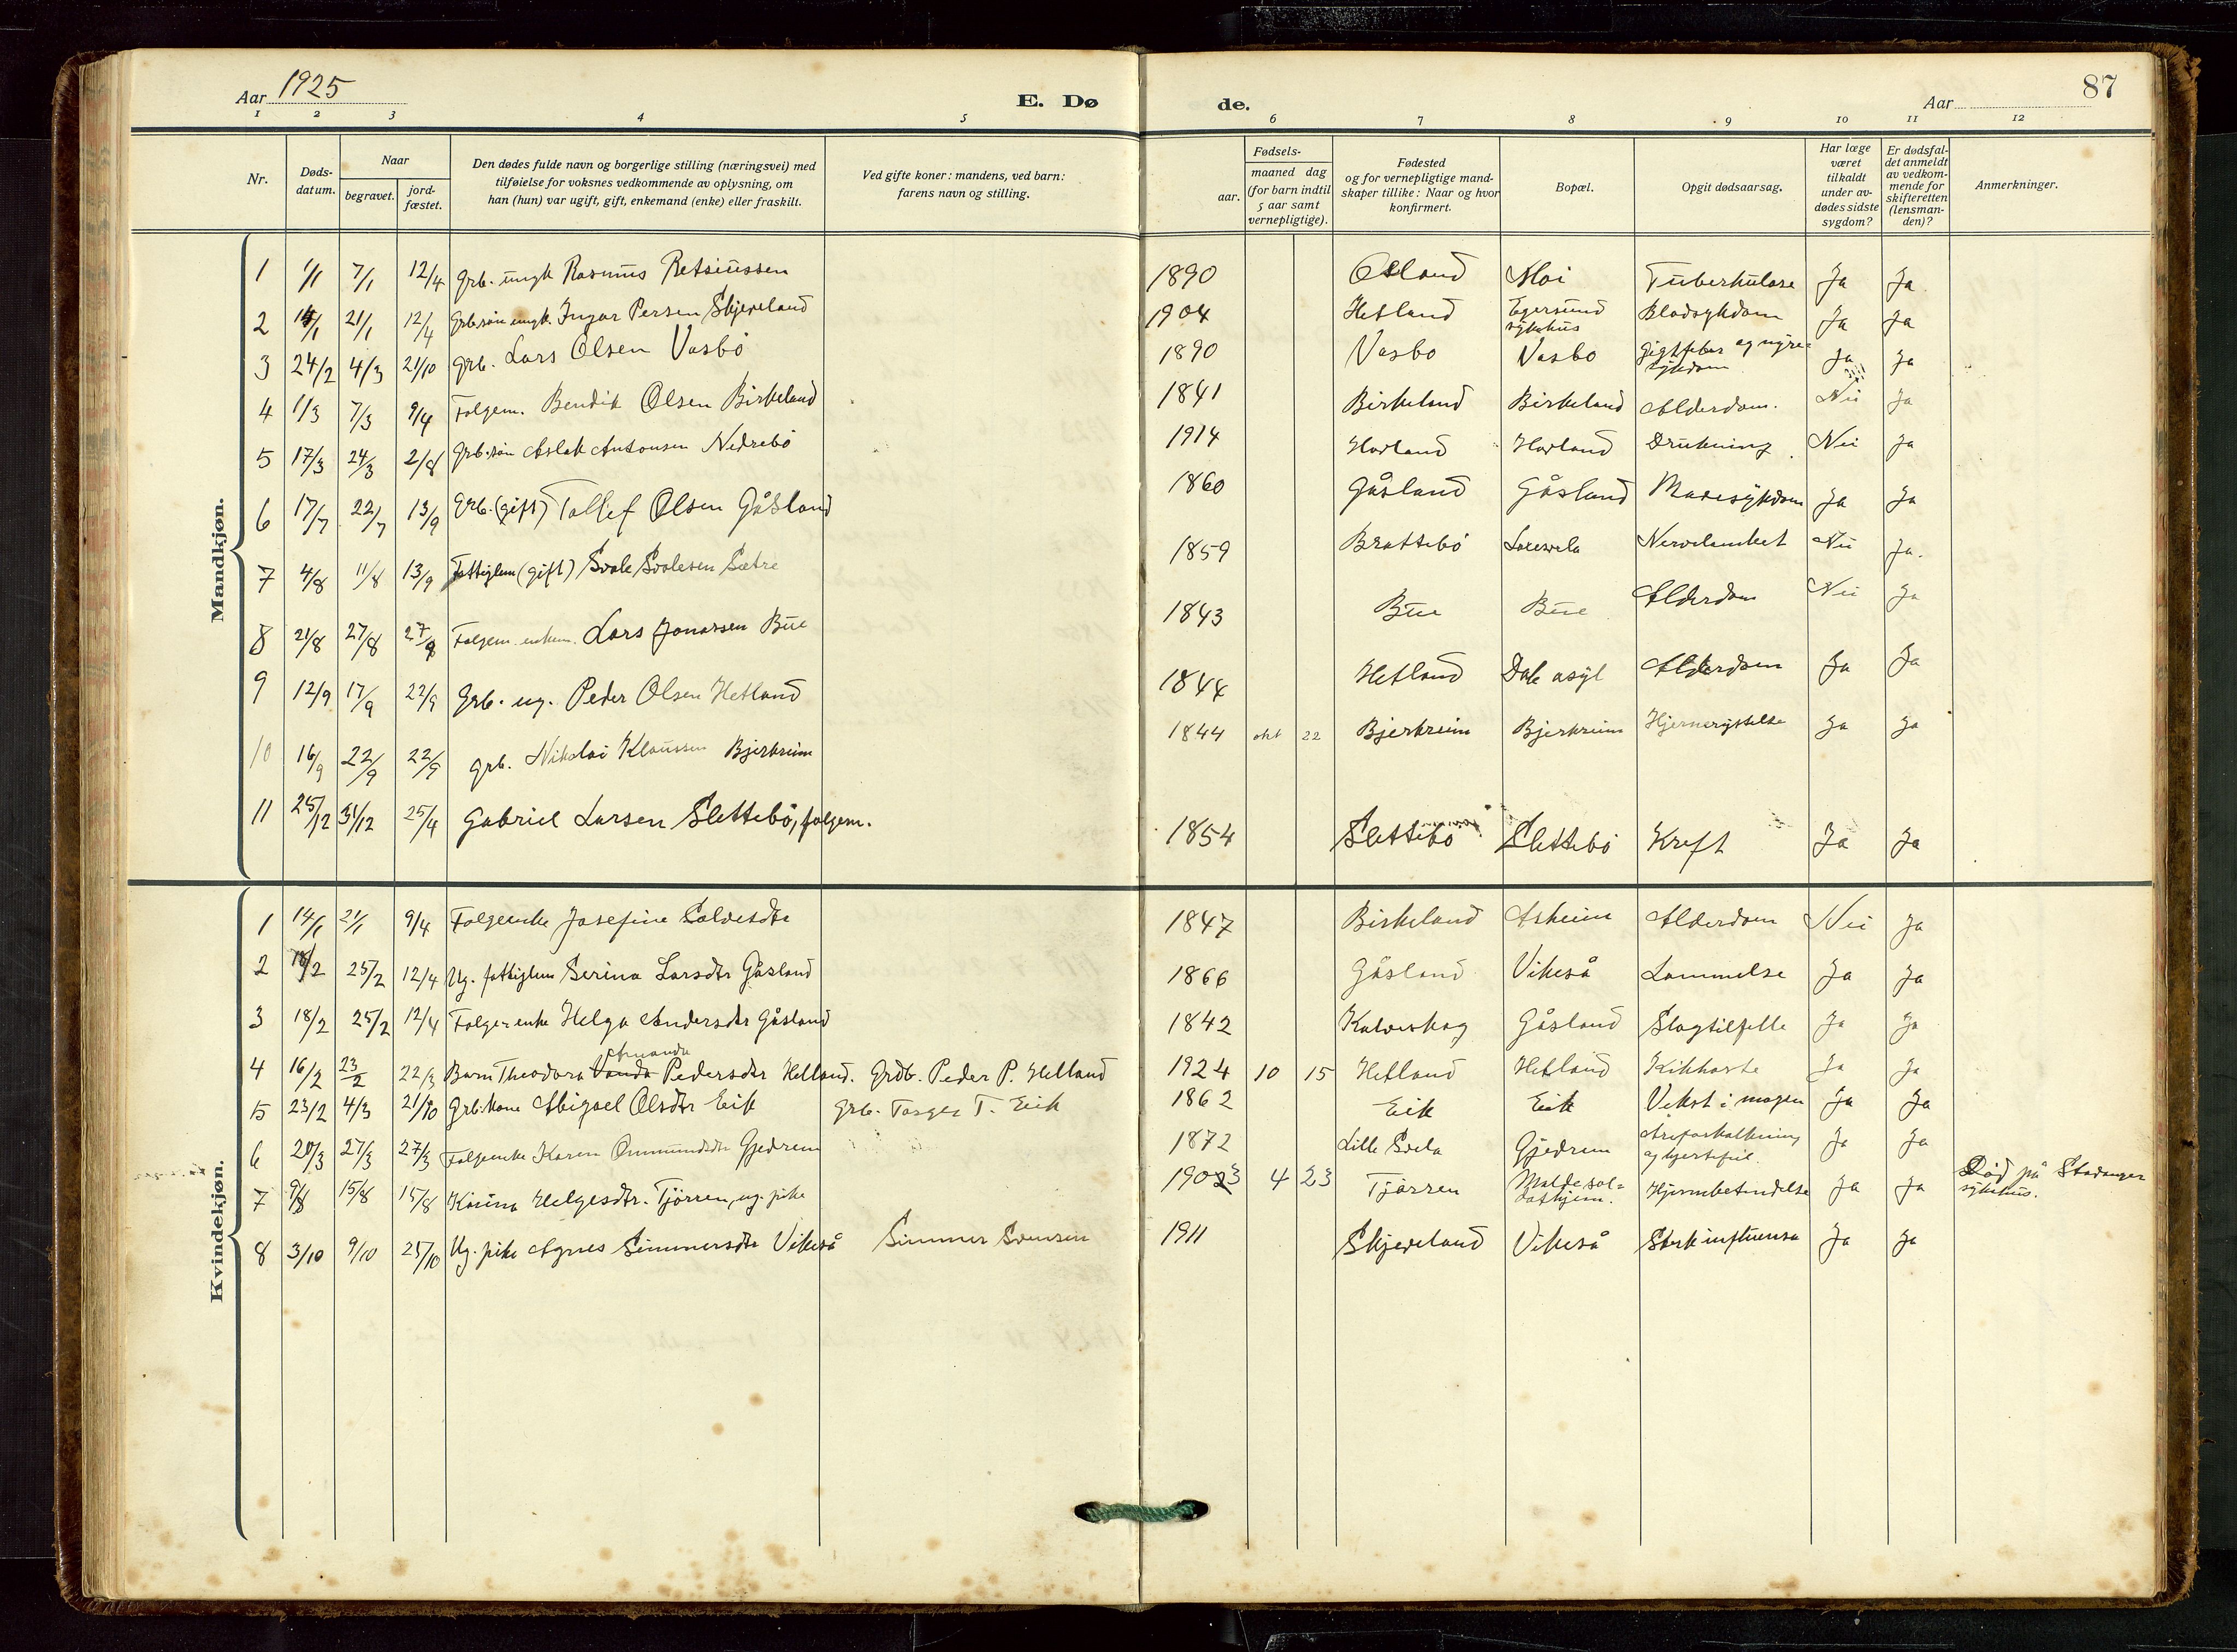 Aar 1925
E. Dø
de.
Aar
87
1 2 3 4 5 6 7 8 9 10 11 12
Nr.
Døds-
datum.
Naar
begravet.
jord-
fæstet.
Den dødes fulde navn og borgerlige stilling (næringsvei) med
tilføielse for voksnes vedkommende av oplysning, om
han (hun) var ugift, gift, enkemand (enke) eller fraskilt.
Ved gifte koner: mandens, ved barn:
farens navn og stilling.
Fødsels-
aar.
maaned dag
(for barn indtil
5 aar samt
vernepligtige).
Fødested
og for vernepligtige mand-
skaper tillike: Naar og hvor
konfirmert.
Bopæl.
Opgit dødsaarsag.
Har læge
været
tilkaldt
under av-
dødes sidste
sygdom?
Er dødsfal-
det anmeldt
av vedkom-
mende for
skifteretten
(lensman-
den)?
Anmerkninger.
Mandkjøn.
1 1/1 7/1 12/4 Grb. ungk Rasmus Retsiussen 1890 Osland Moi Tuberkulose Ja Ja
2 21/1 12/4 Grb.søn ungk. Ingvar Persen Skjeveland 1904 Hetland Egersund sykehus Blodsykdom Ja Ja
3 24/2 4/3 21/10 Grb. Lars Olsen Vasbö 1890 Vasbo Vasbo Gigtfeber og nyre= sykdom Ja Ja
4 1/3 7/3 9/4 Folgem. Bendik Olsen Birkeland 1841 Birkeland Birkeland Alderdom. Nei Ja
5 17/3 24/3 2/8 Grb.søn Aslak Antonsen Nedrebö 1914 Hovland Hovland Drukning Nei Ja
6 17/7 22/7 13/9 Grb. (gift) Tollef Olsen Gåsland 1860 Gåsland Gåsland Mavesykdom Ja Ja
7 4/8 11/8 13/9 Fattiglem (gift) Svale Svalesen Sætre 1859 Brattebö Nervelamhet Nei Ja.
8 21/8 27/8 27/9 Folgem. enkem. Lars Jonassen Bue 1843 Bue Bue Alderdom Nei Ja
9 12/9 17/9 22/9 Grb. ug. Peder Olsen Hetland 1844 Hetland Dale asyl Alderdom Ja Ja
10 16/9 22/9 22/9 grb. Nikolai Klaussen Bjerkreim 1844 okt 22 Bjerkreim Bjerkreim Hjernerystelse Ja Ja
11 25/12 31/12 25/4 Gabriel Larsen Slettebö, folgem. 1854 Slettebö Slettebö Kreft Ja Ja
Kvindekjøn.
1 14/1 21/1 9/4 Folgeenke Josefine Salvesdtr 1847 Birkeland Askeim Alderdom Nei Ja
2 18/2 25/2 12/4 Ug. fattiglem Serina Larsdtr Gåsland 1866 Gåsland Vikeså Lammelse Ja Ja
3 18/2 25/2 12/4 Folgeenke Helga Andersdtr Gåsland 1842 Kalveskog Gåsland Slagtilfelle Ja Ja
Amanda
4 16/2 23/2 22/3 Barn Theodora Vanda Pedersdtr Hetland. Grdb. Peder P. Hetland 1924 10 15 Hetland Hetland Kikhoste Ja Ja
5 23/2 4/3 21/10 Grb.kone Abigael Olsdtr Eik Grb. Torger T. Eik 1862 Eik Eik Vekst i magen Ja Ja
6 20/3 27/3 27/3 Folgeenke Karen Ommundsdtr Gjedrem 1872 Lille Svela Gjedrem Areforkalkning og hjertefeil. Ja Ja
7 9/8 15/8 15/8 Karina Helgesdtr. Tjörren, ug. pike 1903 4 23 Tjörren Molde sol= dathjem. Hjernebetendelse Ja Ja Død på Stavanger sykehus.
8 3/10 9/10 25/10 Ug. pike Agnes Simmersdtr Vikeså Simmer Svensen 1911 Skjeveland Vikeså Sterk influensa Ja Ja